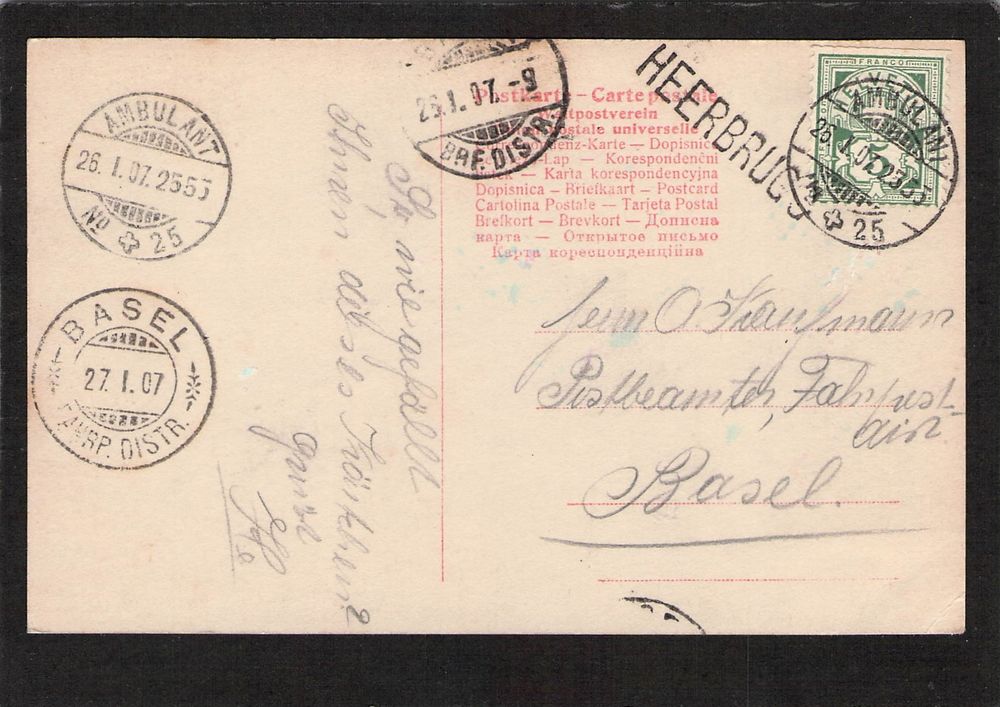 Postkarte – Carte postale
Weltpostverein
Union postale universelle
Korrespondenz-Karte – Dopisnice
Levelező-Lap – Korespondenční
lístek – Karta korespondencyjna
Dopisnica – Briefkaart – Postcard
Cartolina Postale – Tarjeta Postal
Brefkort – Brevkort – Дописна
карта – Открытое письмо
Карта кореспонденційна
HEERBRUGG
FRANCO
HELVETIA
5
AMBULANT
26.I.07.2555
No 25
AMBULANT
26.I.07.2555
No 25
26.I.07.-9
BRF. DISTR.
BASEL
27.I.07
FAHRP. DISTR.
So wie gefällt
Ihnen dieses Kärtchen?
Herrn O. Kaufmann
Postbeamter, Fahrpost-
Basel.